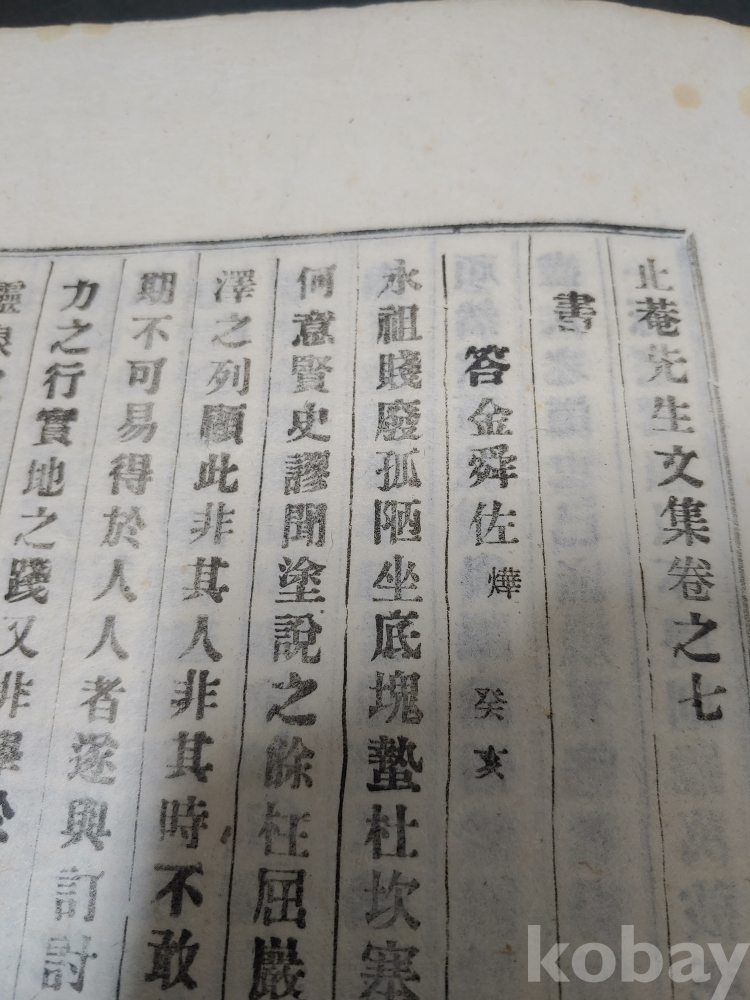 止菴先生文集卷之七
書
答金舜佐 燁 癸亥
永祖賤廢孤陋坐底塊蟄杜坎塞
何意賢史謬聞塗說之餘枉屈巖
澤之列顧此非其人非其時不敢
期不可易得於人人者遂與訂討
力之行實地之踐又非
靈
kobay